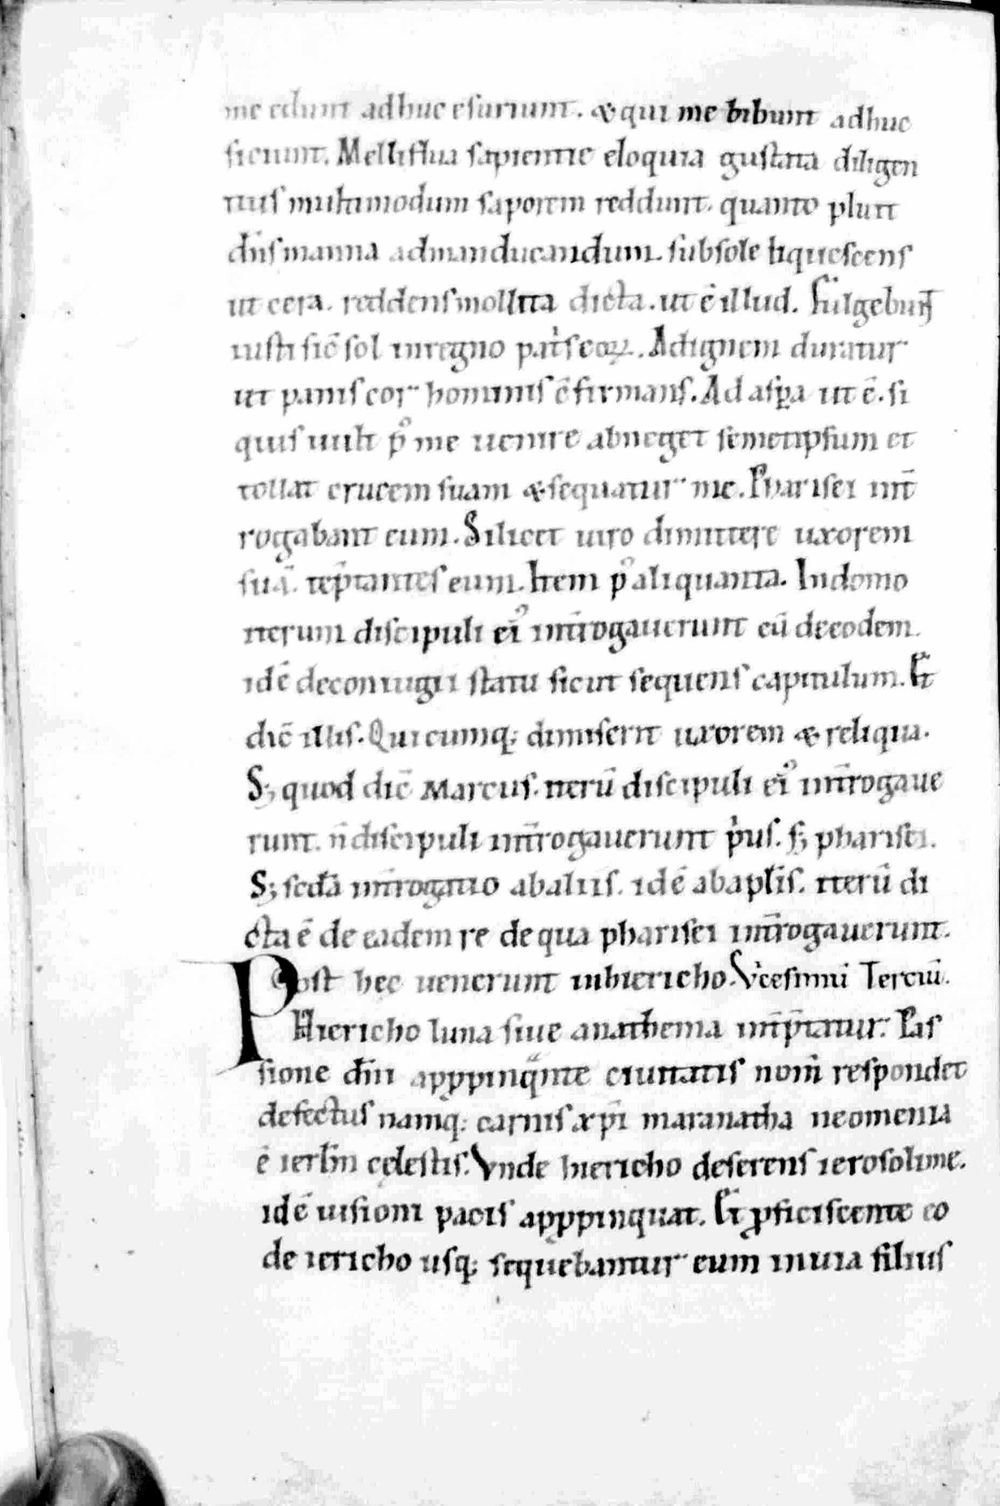 me edunt adhuc esuriunt. & qui me bibunt adhuc
sitiunt. Melliflua sapientie eloquia gustata diligen
tius multimodum saporem reddunt. quanto pluit
dn̄s manna admanducandum. subsole liquescens
ut cera. reddens mollita dicta. ut ē illud. Fulgebunt̄
iusti sic̄ sol inregno patr̄s eoꝝ. Adignem duratur
ut panis cor hominis c̄firmans. Ad asp̄a ut ē. si
quis uult p̊ me uenire abneget semetipsum et
tollat crucem suam & sequatur me. Pharisei int̄
rogabant eum. Si licet uiro dimittere uxorem
suā. tep̄tantes eum. Item p̊ aliquanta. In domo
iterum discipuli ei᾽ int̄rogauerunt eū deeodem.
idē deconiugii statu sicut sequens capitulum. Et
dic̄ illis. Quicumq; dimiserit uxorem & reliqua.
S; quod dic̄ Marcus. iterū discipuli ei᾽ int̄rogaue
runt. n̄ discipuli int̄rogauerunt p̄us. s; pharisei.
S; sc̄dā int̄rogatio abaliis. idē abap̄lis. iterū di
cta ē de eadem re de qua pharisei int̄rogauerunt.
Post hec uenerunt inhiericho. Vicesimū Terciū.
Hiericho luna siue anathema int̄p̄tatur. Pas
sione dn̄i appꝓpinqᵃnte ciuitatis nom̄ respondet
defectus namq; carnis xp̄i maranatha neomenia
ē ierlm̄ celestis. Vnde hiericho deserens ierosolime.
idē uisioni pacis appꝓpinquat. Et ꝓficiscente eo
de iericho usq; sequebantur eum inuia filius